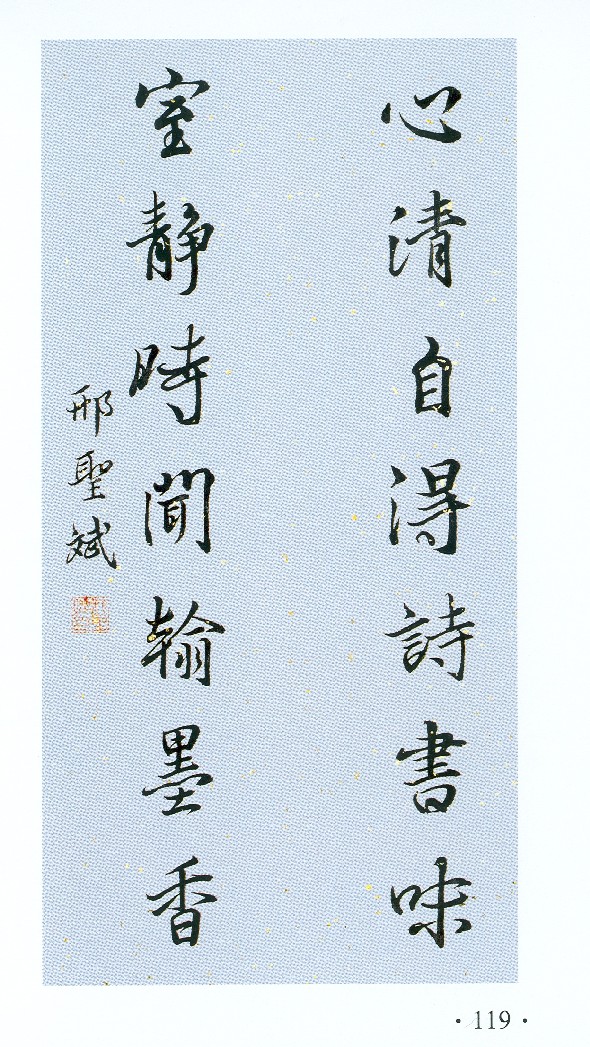 心清自得詩書味
室静時聞翰墨香
邢聖斌
·119·